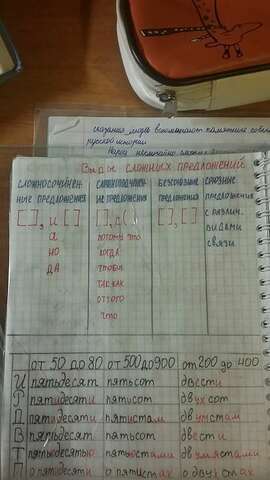 сказания людей вспоминают памятники
русской истории
Народ
Виды сложных предложений
сложносочинен- сложноподчинен- бессоюзные сложные
ные предложения ые предложения предложения предложения
[ ], и [ ] [ ], ( ) [ ], [ ] с различ.
а потому что видами
но когда связи
да чтобы
так как
оттого
что
от 50 до 80 от 500 до 900 от 200 до 400
И пятьдесят пятьсот двести
Р пятидесяти пятисот двухсот
Д пятидесяти пятистам двумстам
В пятьдесят пятьсот двести
Т пятьюдесятью пятьюстами двумястами
П о пятидесяти о пятистах о двухстах